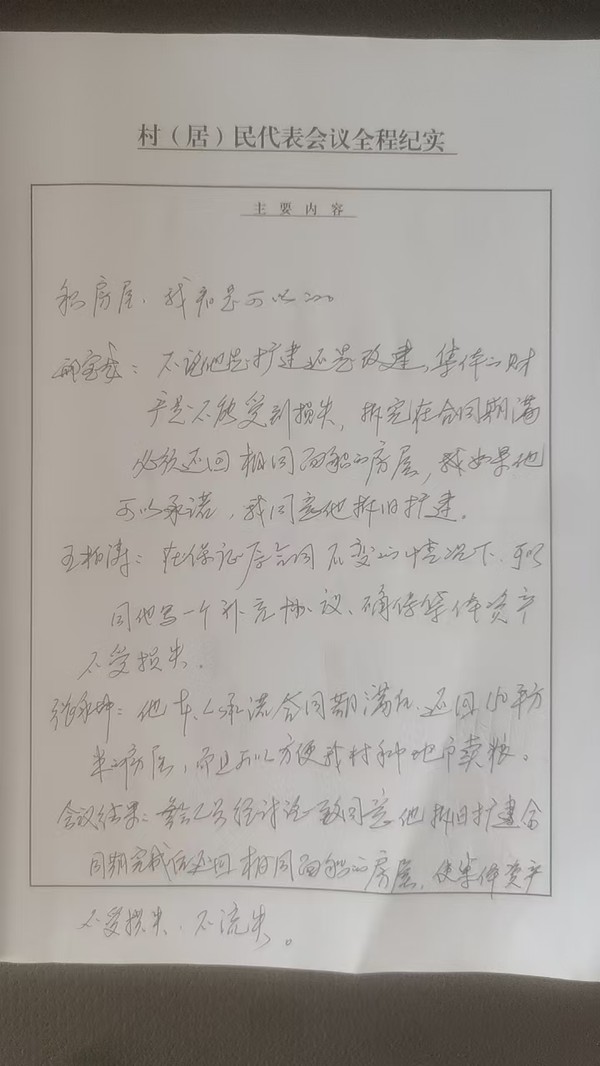 村（居）民代表会议全程纪实
主要内容
积房屋，我看是可以的。
：不论他是扩建还是改建，集体的财
产是不能受到损失，拆完在合同期满
必须还回相同面积的房屋，我如果他
可以承诺，我同意他拆旧扩建。
王柏涛：在保证原合同不变的情况下，可以
同他写一个补充协议、确保集体资产
不受损失。
张永坤：他本人承诺合同期满后，还回 平方
米的房屋，而且可以方便我村种地户卖粮。
会议结果：参会人员经讨论一致同意他拆旧扩建合
同期完成后还回相同面积的房屋，使集体资产
不受损失、不流失。